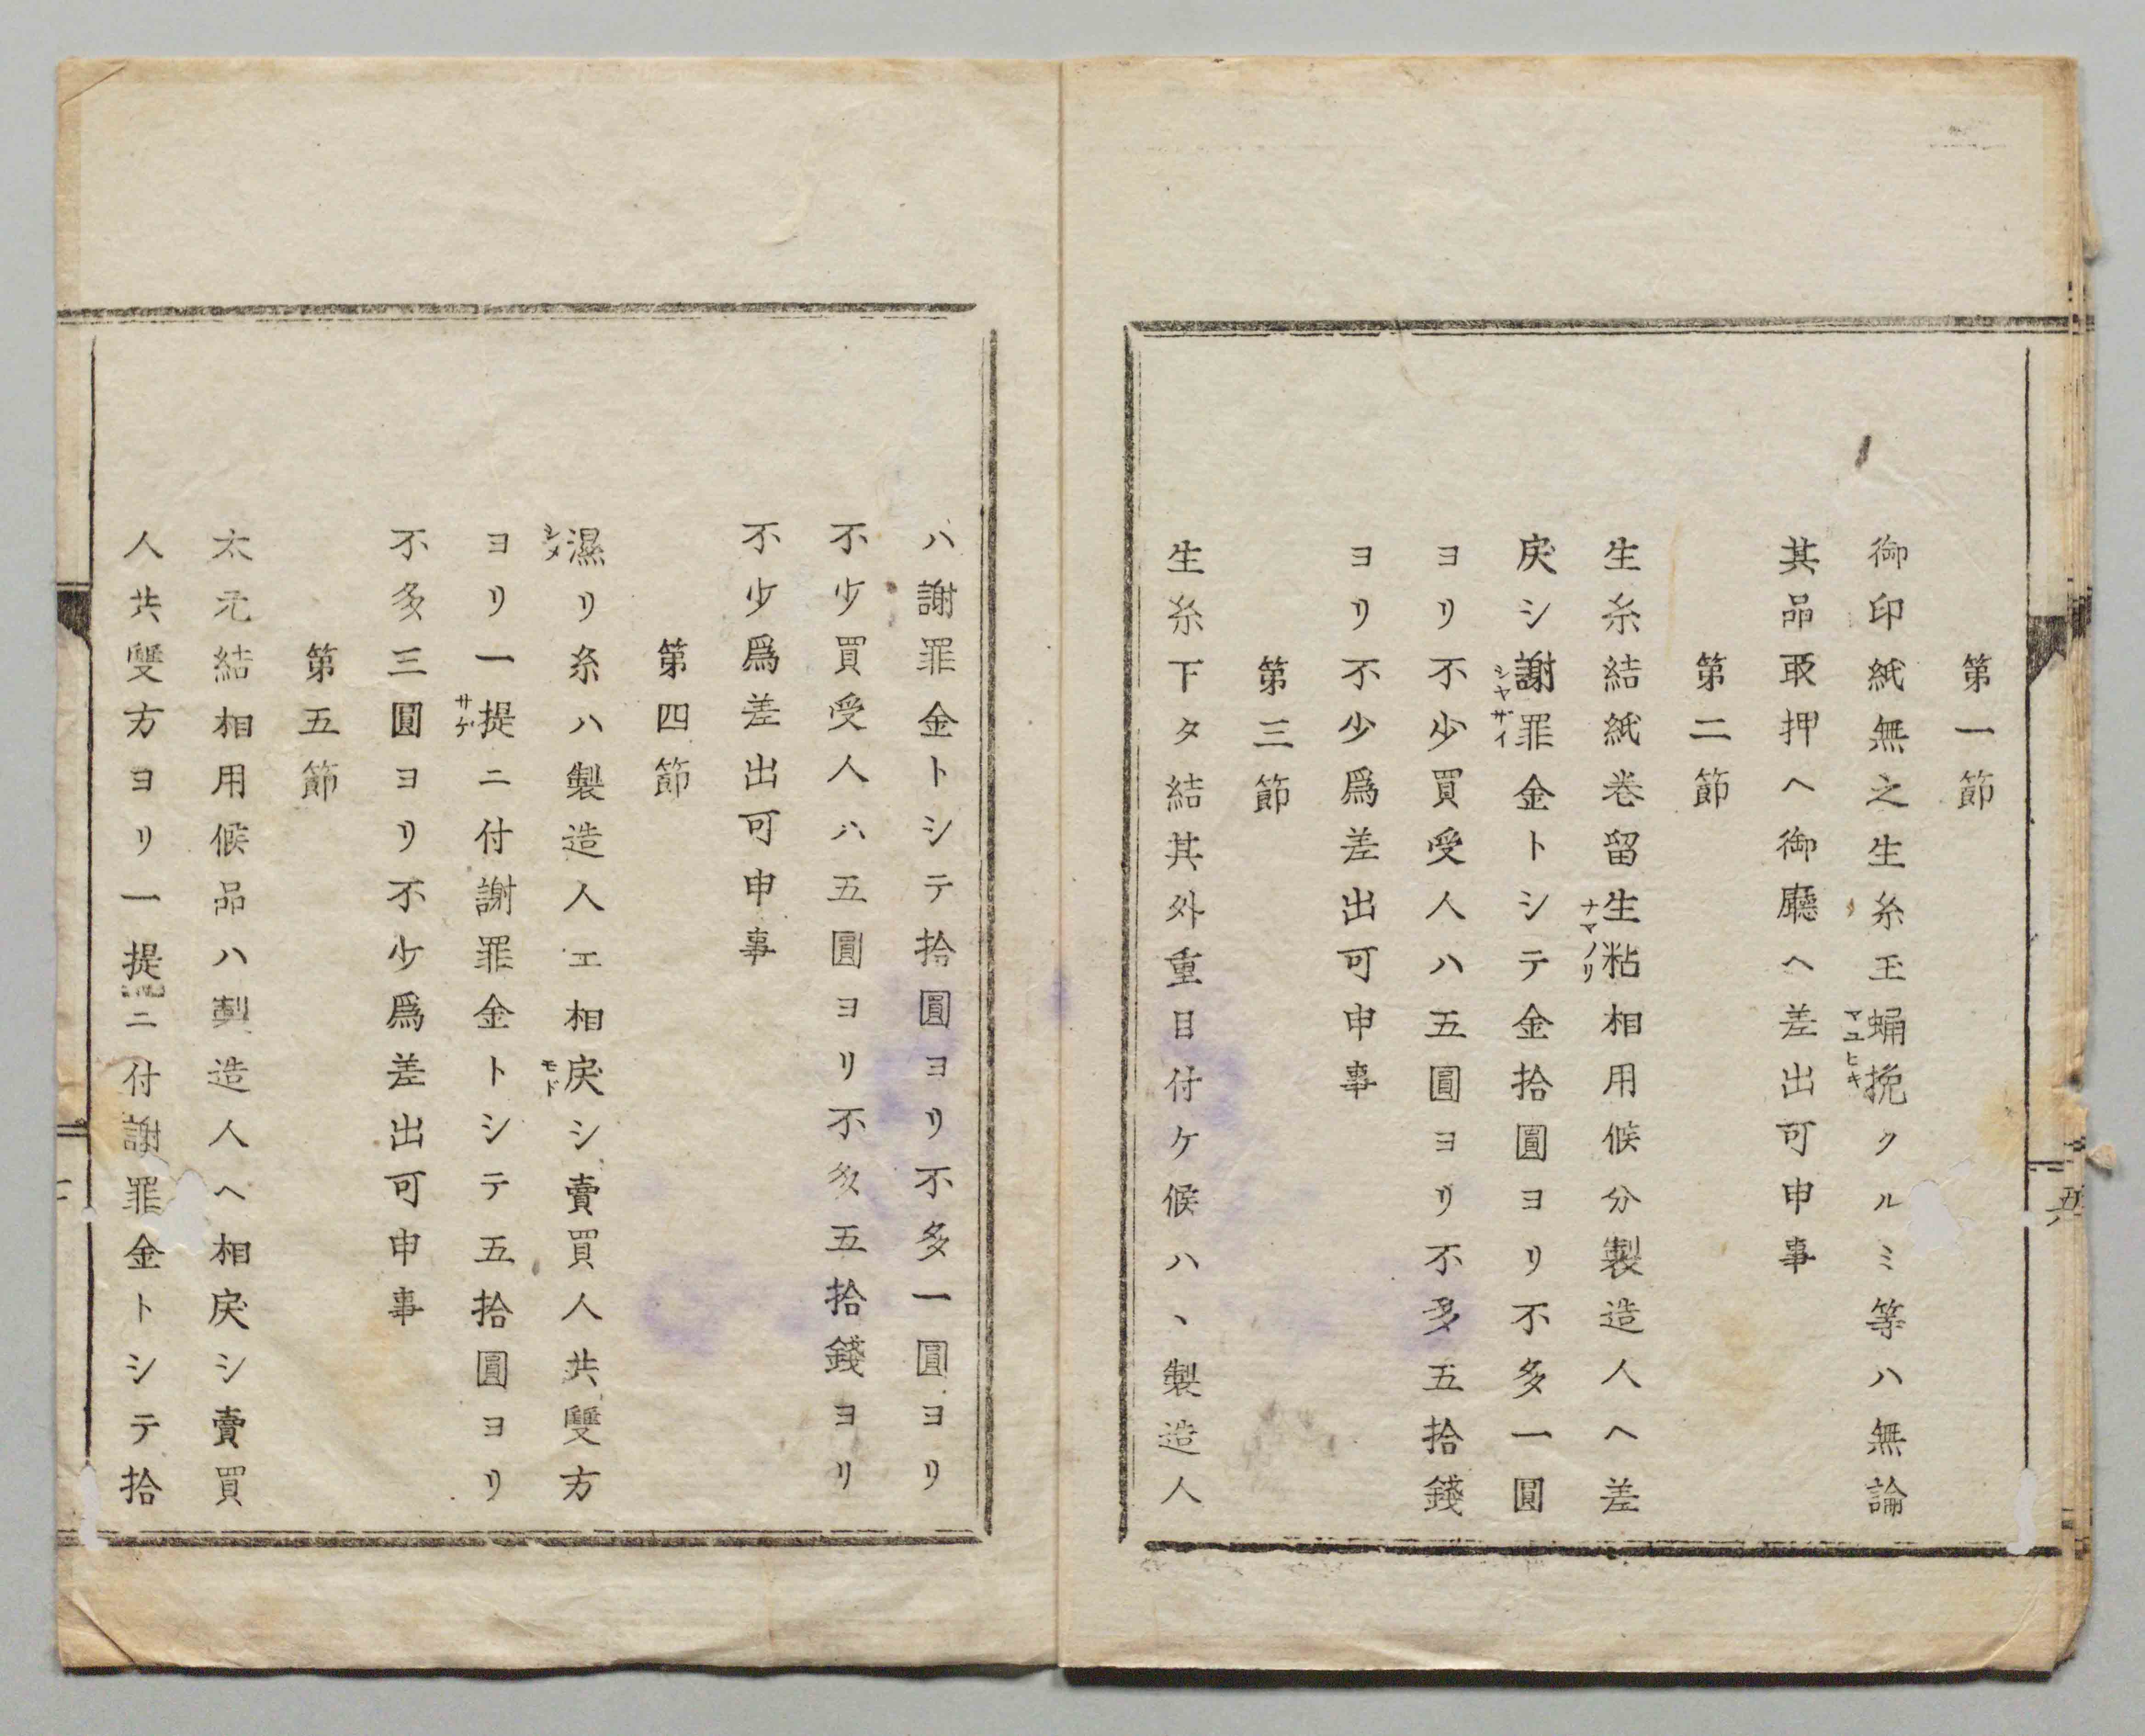 第一節
御印紙無之生糸玉蛹挽クルミ等ハ無論
マユヒキ
其品取押ヘ御廳ヘ差出可申事
第二節
生糸結紙巻留生粘相用候分製造人ヘ差
ナマノリ
戻シ謝罪金トシテ金拾圓ヨリ不多一圓
シヤザイ
ヨリ不少買受人ハ五圓ヨリ不多五拾錢
ヨリ不少爲差出可申事
第三節
生糸下タ結其外重目付ケ候ハヽ製造人
ハ謝罪金トシテ拾圓ヨリ不多一圓ヨリ
不少買受人ハ五圓ヨリ不多五拾錢ヨリ
不少爲差出可申事
第四節
濕リ糸ハ製造人エ相戻シ賣買人共雙方
シメ
モド
ヨリ一提ニ付謝罪金トシテ五拾圓ヨリ
サゲ
不多三圓ヨリ不少爲差出可申事
第五節
太元結相用候品ハ製造人ヘ相戻シ賣買
人共雙方ヨリ一提ニ付謝罪金トシテ拾